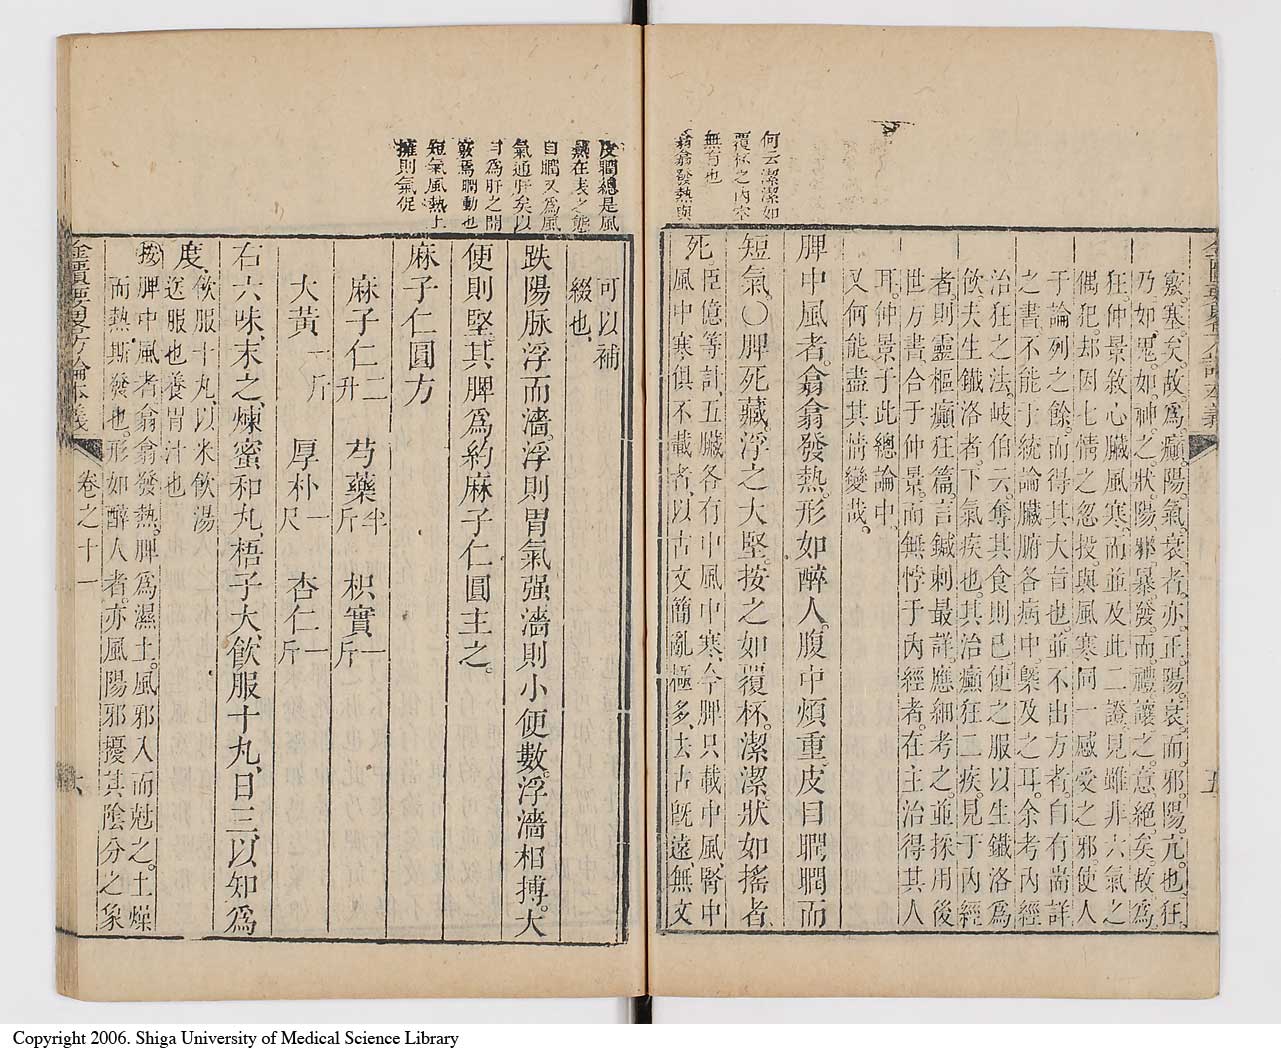 何云潔潔如
覆杯之内宋
無有也
翕翕發熱與
竅塞矣故爲癲陽氣衰者亦正陽衰而邪陽亢也狂
乃如鬼如神之狀陽邪暴發而禮讓之意絕矣故爲
狂仲景敘心臟風寒而並及此二證見雖非六氣之
偶犯却因七情之忽投與風寒同一感受之邪使人
于論列之餘而得其大旨也並不出方者自有耑詳
之書不能于統論臟腑各病中槩及之耳余考內經
治狂之法岐伯云奪其食則已使之服以生鐵洛爲
飲夫生鐵洛者下氣疾也其治癲狂二疾見于內經
者則靈樞癲狂篇言鍼刺最詳應細考之並採用後
世方書合于仲景而無悖于內經者在主治得其人
耳仲景于此總論中
又何能盡其情變哉
脾中風者翕翕發熱形如醉人腹中煩重皮目瞤瞤而
短氣〇脾死藏浮之大堅按之如覆杯潔潔狀如搖者
死臣億等計五臟各有中風中寒今脾只載中風腎中
風中寒俱不載者以古文簡亂極多去古既遠無文
金匱要畧方論本義
五
皮瞤總是風
熱在表之態
目瞤又爲風
氣通肝矣以
目爲肝之開
竅焉瞤動也
短氣風熱上
擁則氣促
可以補
綴也
趺陽脉浮而濇浮則胃氣强濇則小便數浮濇相搏大
便則堅其脾爲約麻子仁圓主之
麻子仁圓方
麻子仁二升 芍藥半斤 枳實一斤
大黃一斤 厚朴一尺 杏仁一斤
右六味末之煉蜜和丸梧子大飲服十丸日三以知爲
度飲服十丸以米飲湯
送服也養胃汁也
按脾中風者翕翕發熱脾爲濕土風邪入而尅之土燥
而熱斯發也形如醉人者亦風陽邪擾其陰分之象
金匱要畧方論本義
卷之十一
六